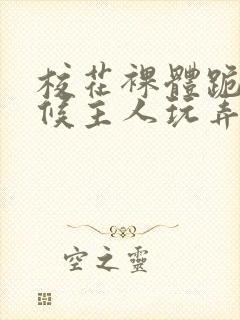 校花裸體跪
候主人玩弄
空之靈